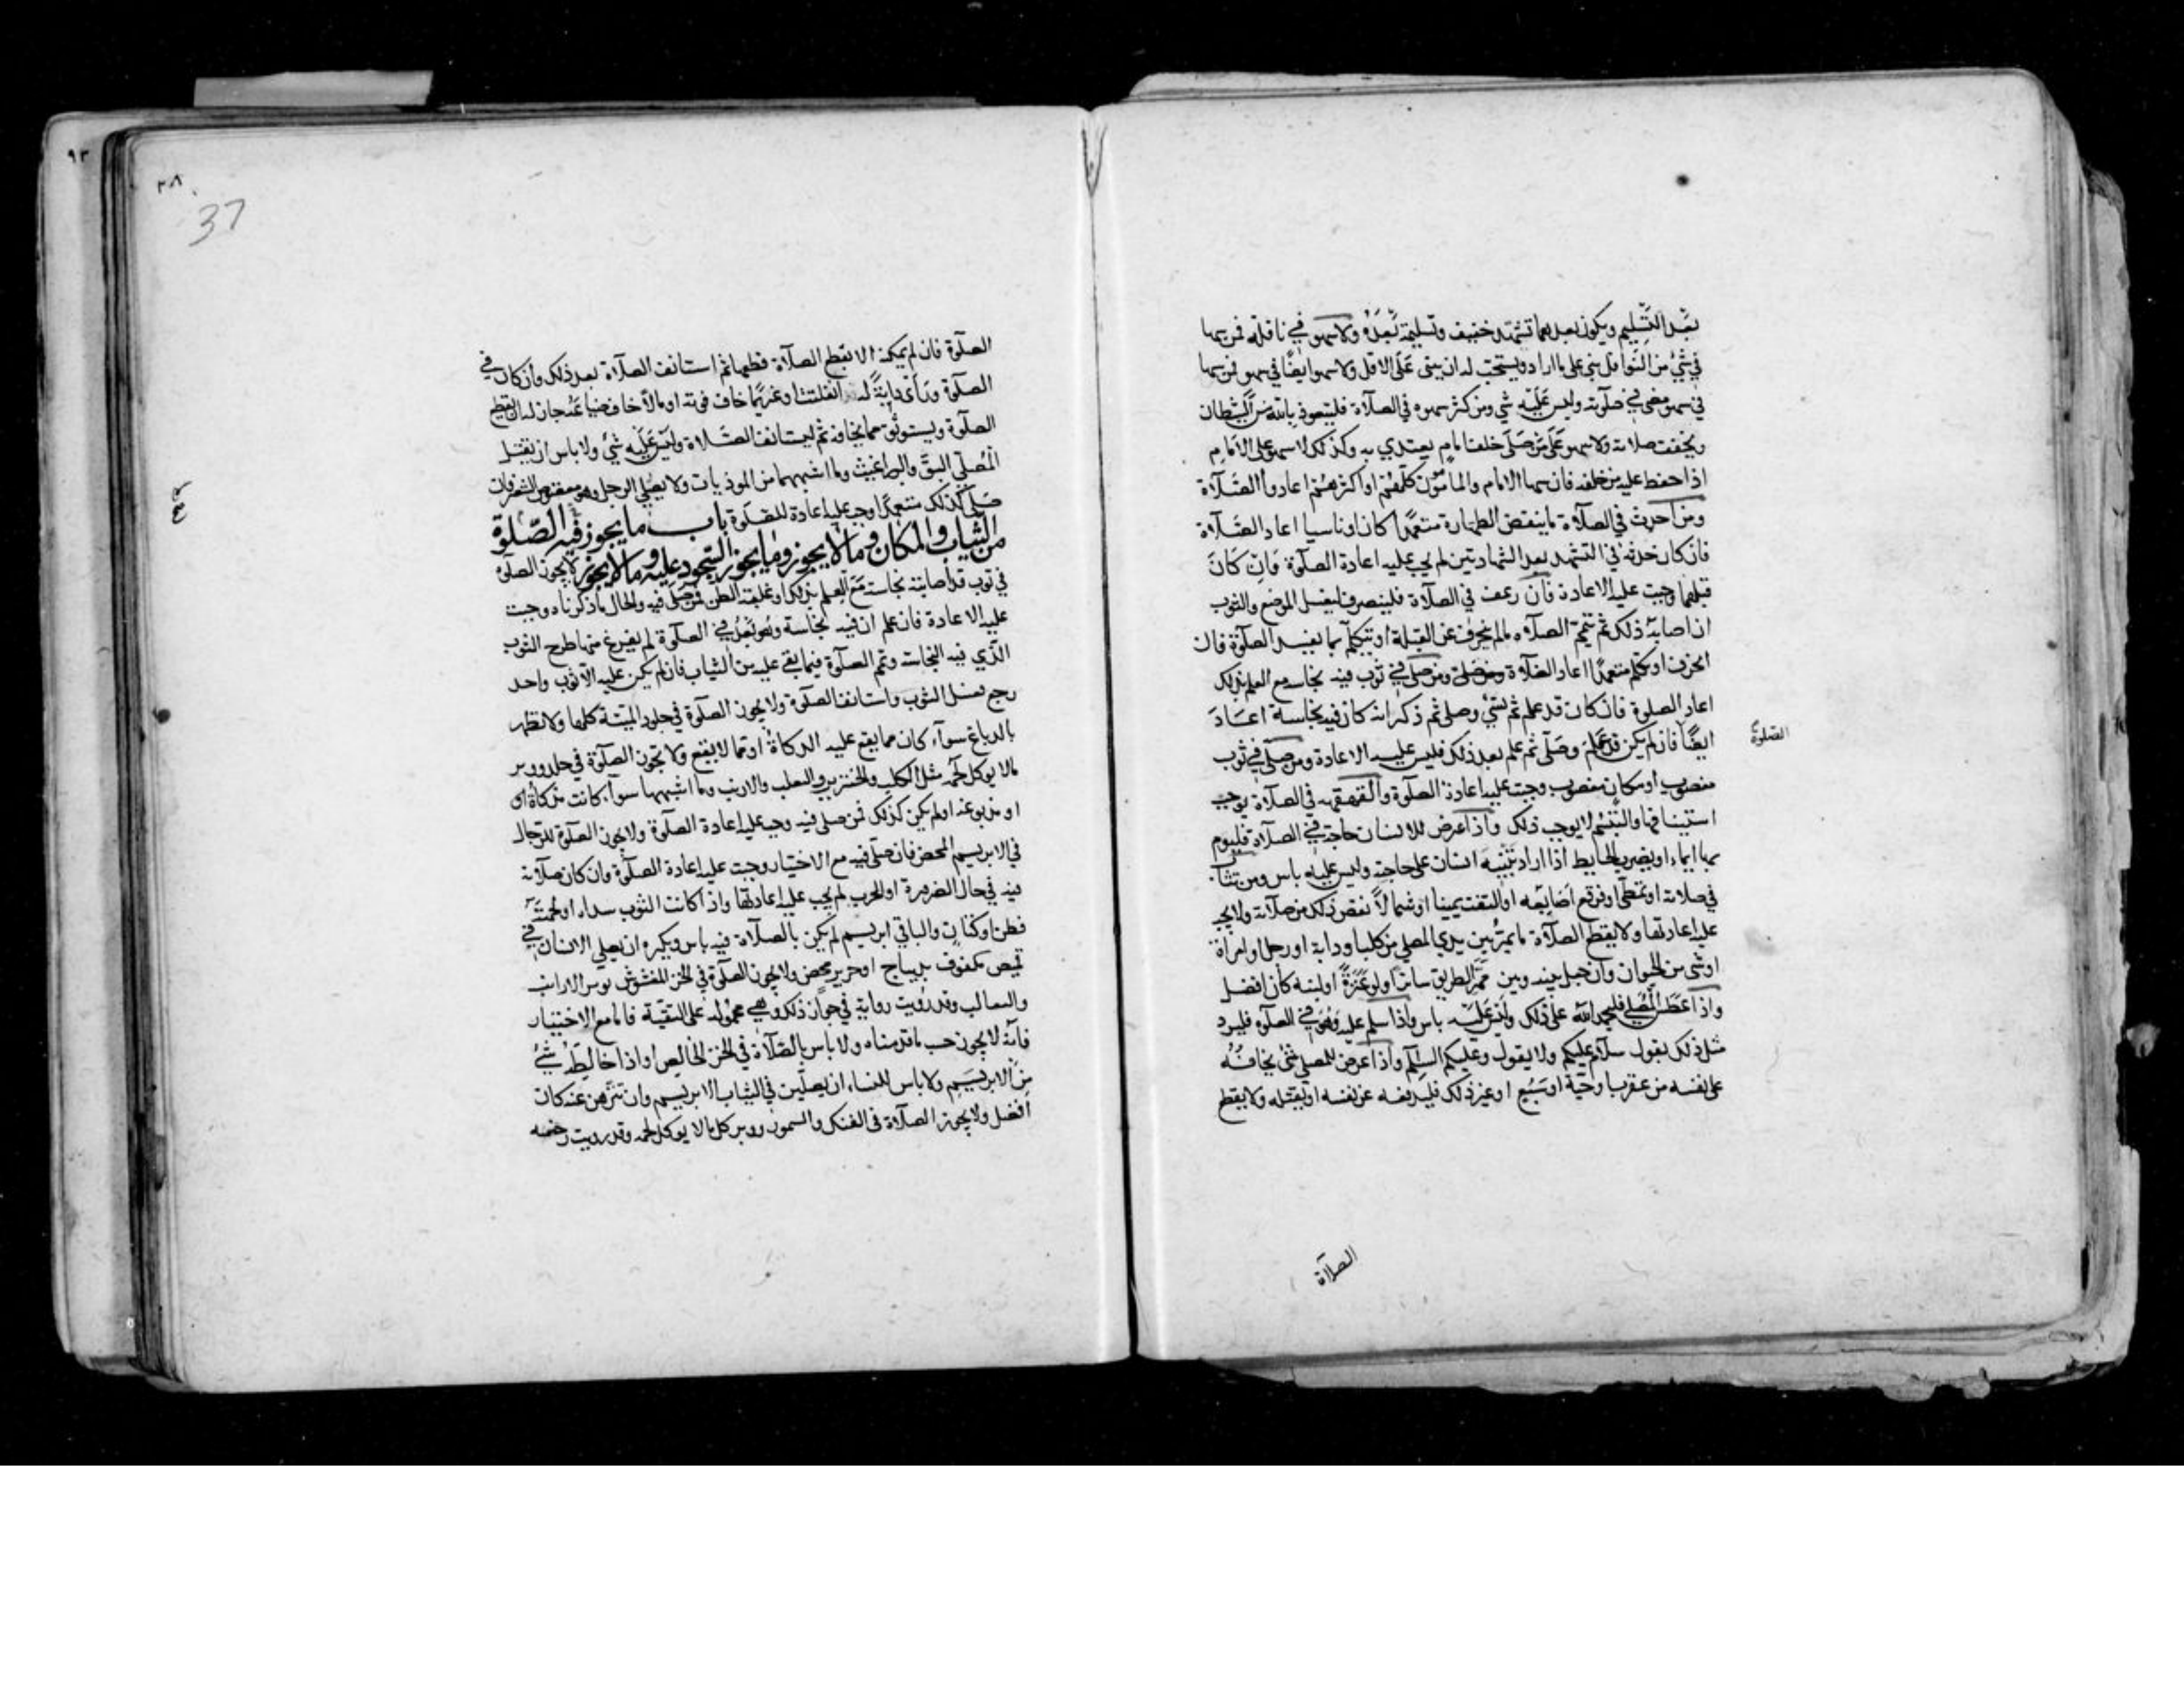 بعد التسليم ويكون بعدهما تشهد خفيف وتسليمة بعده ولا سهو في نافلة فمن سها
في شيء من النوافل بنى على ما اراد ويستحب له ان يبني على الاقل ولا سهو ايضا في سهو فمن سها
في سهو مضى في صلوته وليس عليه شيء ومن كثر سهوه في الصلاة فليتعوذ بالله من الشيطان
ويخفف صلاته ولا سهو على من صلى خلف امام يقتدي به وكذلك لا سهو على الامام
اذا حفظ عليه من خلفه فان سها الامام والمأموون كلهم او اكثرهم اعادوا الصلاة
ومن احدث في الصلاة ما ينقض الطهارة متعمدا كان او ناسيا اعاد الصلاة
فان كان حدثه في التشهد بعد الشهادتين لم يجب عليه اعادة الصلوة فان كان
قبلهما وجبت عليه الاعادة فان رعف في الصلاة فلينصرف ليغسل الموضع والثوب
ان اصابه ذلك ثم يتمم الصلاه ما لم ينحرف عن القبلة او يتكلم بما يفسد الصلوة فان
انحرف او تكلم متعمدا اعاد الصلاة ومن صلى في ثوب فيه نجاسة مع العلم بذلك
اعاد الصلوة فان كان قد علم ثم نسي وصلى ثم ذكر انه كان فيه نجاسة اعاد
الصلوة
ايضا فان لم يكن قد علم وصلى ثم علم بعد ذلك فليس عليه الاعادة ومن صلى في ثوب
مغصوب او مكان مغصوب وجبت عليه اعادة الصلوة والقهقهه في الصلاة يوجب
استينافها والتبسم لا يوجب ذلك واذا عرض للانسان حاجة في الصلاة فليوم
بها ايماء او يضرب الحايط اذا اراد تنبيه انسان على حاجته وليس عليه باس ومن تثاب
في صلاته او تمطى او فرقع اصابعه او التفت يمينا او شمالا نقص ذلك من صلاته ولا يجب
عليه اعادتها ولا يقطع الصلاة ما يمر بين يدي المصلي من كلب او دابة او رجل او امراة
او شيء من الحيوان وان جعل بينه وبين ممر الطريق ساترا ولو عنزة او لبنه كان افضل
واذا عطس المصلي فليحمد الله على ذلك وليس عليه باس واذا سلم عليه وهو في الصلوه فليرد
مثل ذلك يقول سلام عليكم ولا يقول وعليكم السلم واذا عرض للمصلي شيء يخافه
على نفسه من عقرب او حية او سبع او غير ذلك فليدفعه عن نفسه او يقتله ولا يقطع
الصلاة
٩٣
٣٨
37
الصلوة فان لم يمكنه الا بقطع الصلاة قطعها ثم استانف الصلاة بعد ذلك وان كان في
الصلوة وراى دابة له انفلتت او غريما خاف فوته او مالا خاف ضياعه جاز له ان يقطع
الصلوة ويستوثق مما يخافه ثم ليستانف الصلاة وليس عليه شيء ولا باس ان يقتل
المصلي البق والبراغيث وما اشبههما من الموذيات ولا يصلي الرجل وهو معقوص الشعر فان
صلى كذلك متعمدا وجب عليه اعادة للصلوة باب ما يجوز فيه الصلوة
من الثياب والمكان وما لا يجوز وما يجوز السجود عليه وما لا يجوز لا يجوز الصلوه
في ثوب قد اصابته نجاسة مع العلم بذلك او غلبة الظن فمن صلى فيه والحال ما ذكرناه وجبت
عليه الاعادة فان علم ان فيه نجاسة وهو بعد في الصلوة لم يفرغ منها طرح الثوب
الذي فيه النجاسة وتمم الصلوة فيما بقي عليه من الثياب فان لم يكن عليه الا ثوب واحد
رجع فغسل الثوب واستانف الصلوة ولا يجوز الصلوة في جلود الميتة كلها ولا تطهر
بالدباغ سوآء كان مما يقع عليه الذكاة او مما لا يقع ولا تجوز الصلوة في جلد ووبر
ما لا يوكل لحمه مثل الكلب والخنزير والثعلب والارنب وما اشبهها سوآء كانت مذكاة او
او مدبوغه او لم يكن كذلك فمن صلى فيه وجب عليه اعادة الصلوة ولا يجوز الصلوة للرجال
في الابريسم المحض فان صلى فيه مع الاختيار وجبت عليه اعادة الصلوة وان كان صلاته
فيه في حال الضرورة او الحرب لم يجب عليه اعادتها واذا كانت الثوب سداه او لحمته
قطن او كتان والباقي ابريسم لم يكن بالصلاة فيه باس ويكره ان يصلي الانسان في
قميص مكفوف بديباج او حرير محض ولا يجوز الصلوة في الخز المغشوش بوبر الارانب
والثعالب وقد رويت رواية في جواز ذلك وهي محمولة على التقية فاما مع الاختيار
فانه لا يجوز حسب ما قدمناه ولا باس بالصلاة في الخز الخالص او اذا خالطه شيء
من الابريسم ولا باس للنساء ان يصلين في الثياب الابريسم وان تنزهن عنه كان
افضل ولا يجوز الصلاة في الفنك والسمور ووبر كل ما لا يوكل لحمه وقد رويت رخصه